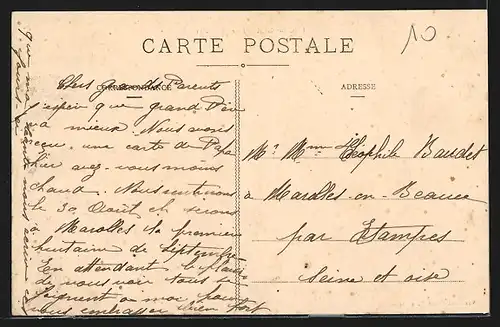 10
CARTE POSTALE
CORRESPONDANCE
ADRESSE
Chers grands Parents
J'espère que grand Père
va mieux. Nous avons
reçu une carte de Papa
hier avez-vous moins
chaud. Nous
le 30 Août et serons
à Marolles la première
huitaine de Septembre
En attendant le plaisir
de vous voir tous se
joignent à moi pour
vous embrasser bien fort
Mr Mme Théophile Baudet
à Marolles-en-Beauce
par Etampes
Seine et Oise